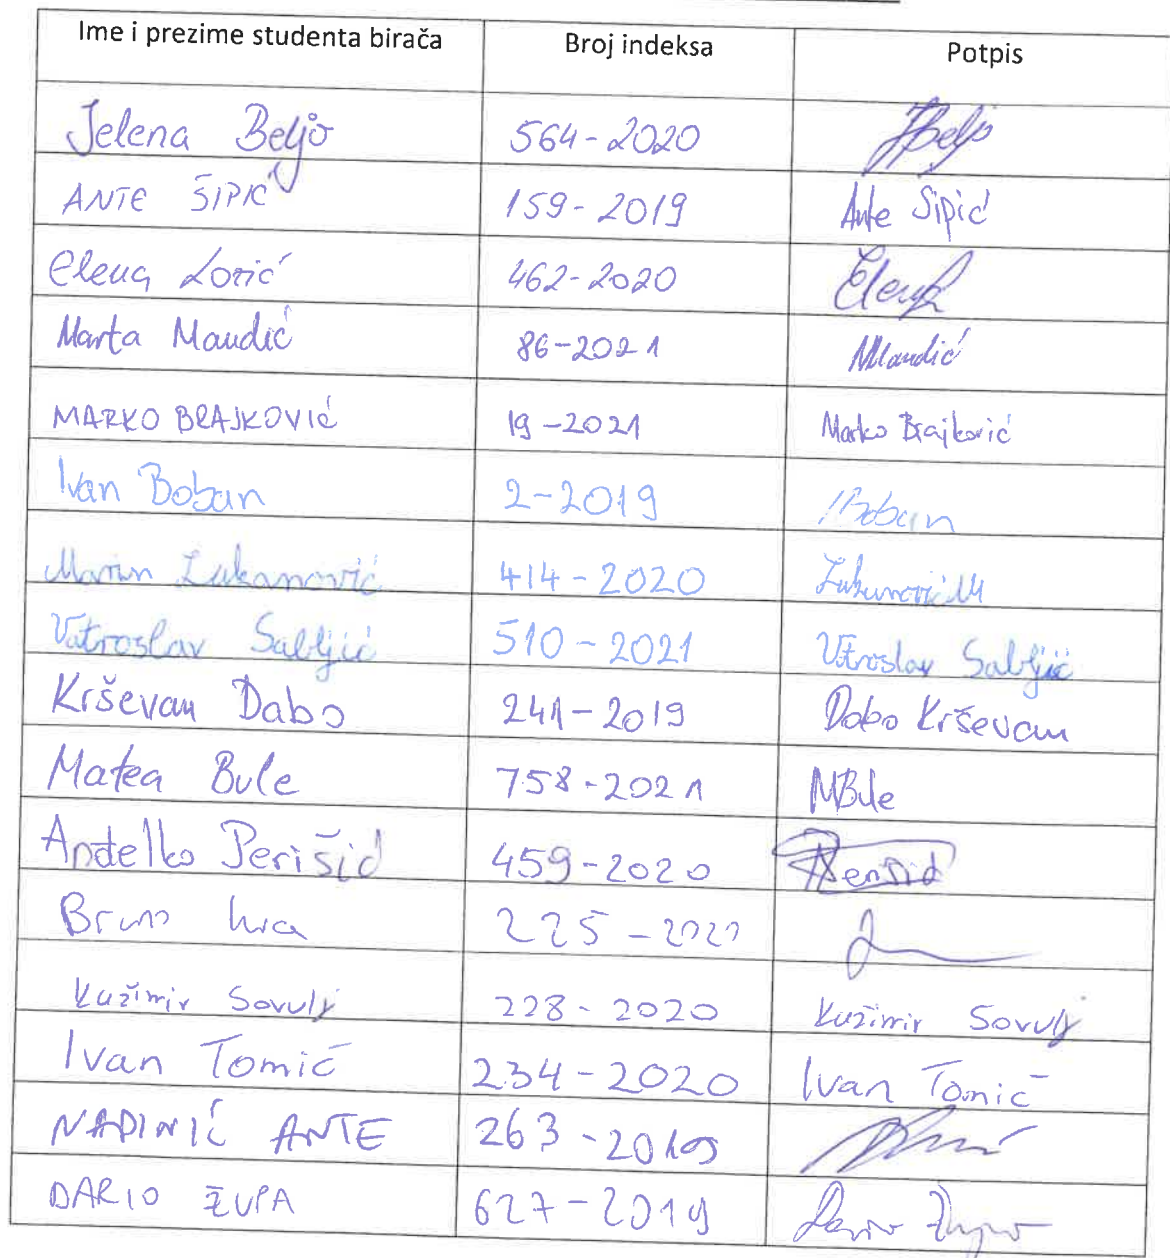 Ime i prezime studenta birača Broj indeksa Potpis
Jelena Beljo 564-2020 JBeljo
ANTE ŠIPIĆ 159-2019 Ante Šipić
Elena Lozić 462-2020 Elena
Marta Maudić 86-2021 MMaudić
MARKO BRAJKOVIĆ 19-2021 Marko Brajković
Ivan Boban 2-2019 IBoban
Marin Lukanović 414-2020 Lukanović M
Vatroslav Sabljić 510-2021 Vatroslav Sabljić
Krševan Dabo 241-2019 Dabo Krševan
Matea Bule 758-2021 MBule
Anđelko Perišić 459-2020 Perišić
Bruno 225-2020
Kužimir Sovulj 228-2020 Kužimir Sovulj
Ivan Tomić 234-2020 Ivan Tomić
NADINIĆ ANTE 263-2019
DARIO ŽUPA 627-2019 Dario Župa